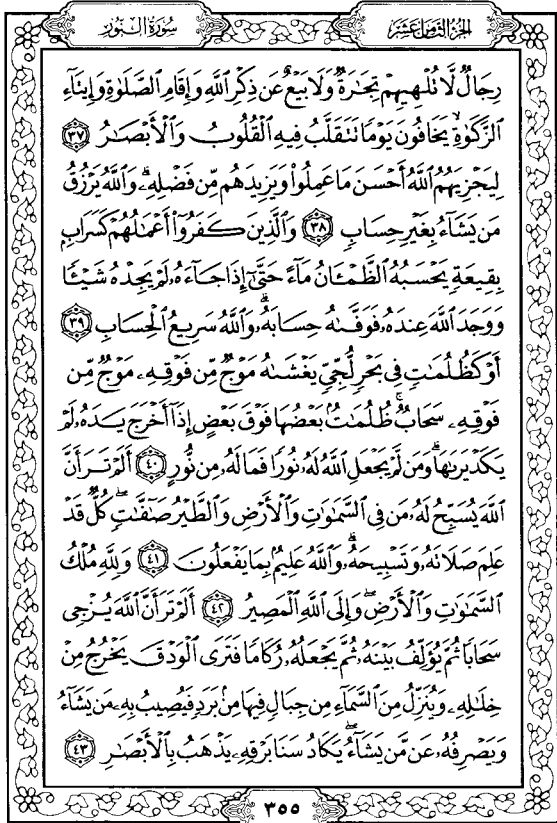 سُورَةُ النُّورِ
الجُزْءُ الثَّامِنُ عَشَرَ
رِجَالٌ لَّا تُلْهِيهِمْ تِجَٰرَةٌ وَلَا بَيْعٌ عَن ذِكْرِ ٱللَّهِ وَإِقَامِ ٱلصَّلَوٰةِ وَإِيتَآءِ
ٱلزَّكَوٰةِ ۙ يَخَافُونَ يَوْمًا تَتَقَلَّبُ فِيهِ ٱلْقُلُوبُ وَٱلْأَبْصَٰرُ ٣٧
لِيَجْزِيَهُمُ ٱللَّهُ أَحْسَنَ مَا عَمِلُوا۟ وَيَزِيدَهُم مِّن فَضْلِهِۦ ۗ وَٱللَّهُ يَرْزُقُ
مَن يَشَآءُ بِغَيْرِ حِسَابٍ ٣٨ وَٱلَّذِينَ كَفَرُوٓا۟ أَعْمَٰلُهُمْ كَسَرَابٍۭ
بِقِيعَةٍ يَحْسَبُهُ ٱلظَّمْـَٔانُ مَآءً حَتَّىٰٓ إِذَا جَآءَهُۥ لَمْ يَجِدْهُ شَيْـًٔا
وَوَجَدَ ٱللَّهَ عِندَهُۥ فَوَفَّىٰهُ حِسَابَهُۥ ۗ وَٱللَّهُ سَرِيعُ ٱلْحِسَابِ ٣٩
أَوْ كَظُلُمَٰتٍ فِى بَحْرٍ لُّجِّىٍّ يَغْشَىٰهُ مَوْجٌ مِّن فَوْقِهِۦ مَوْجٌ مِّن
فَوْقِهِۦ سَحَابٌ ۚ ظُلُمَٰتٌۢ بَعْضُهَا فَوْقَ بَعْضٍ إِذَآ أَخْرَجَ يَدَهُۥ لَمْ
يَكَدْ يَرَىٰهَا ۗ وَمَن لَّمْ يَجْعَلِ ٱللَّهُ لَهُۥ نُورًا فَمَا لَهُۥ مِن نُّورٍ ٤٠ أَلَمْ تَرَ أَنَّ
ٱللَّهَ يُسَبِّحُ لَهُۥ مَن فِى ٱلسَّمَٰوَٰتِ وَٱلْأَرْضِ وَٱلطَّيْرُ صَٰٓفَّٰتٍ ۖ كُلٌّ قَدْ
عَلِمَ صَلَاتَهُۥ وَتَسْبِيحَهُۥ ۗ وَٱللَّهُ عَلِيمٌۢ بِمَا يَفْعَلُونَ ٤١ وَلِلَّهِ مُلْكُ
ٱلسَّمَٰوَٰتِ وَٱلْأَرْضِ ۖ وَإِلَى ٱللَّهِ ٱلْمَصِيرُ ٤٢ أَلَمْ تَرَ أَنَّ ٱللَّهَ يُزْجِى
سَحَابًا ثُمَّ يُؤَلِّفُ بَيْنَهُۥ ثُمَّ يَجْعَلُهُۥ رُكَامًا فَتَرَى ٱلْوَدْقَ يَخْرُجُ مِنْ
خِلَٰلِهِۦ وَيُنَزِّلُ مِنَ ٱلسَّمَآءِ مِن جِبَالٍ فِيهَا مِنۢ بَرَدٍ فَيُصِيبُ بِهِۦ مَن يَشَآءُ
وَيَصْرِفُهُۥ عَن مَّن يَشَآءُ ۖ يَكَادُ سَنَا بَرْقِهِۦ يَذْهَبُ بِٱلْأَبْصَٰرِ ٤٣
٣٥٥